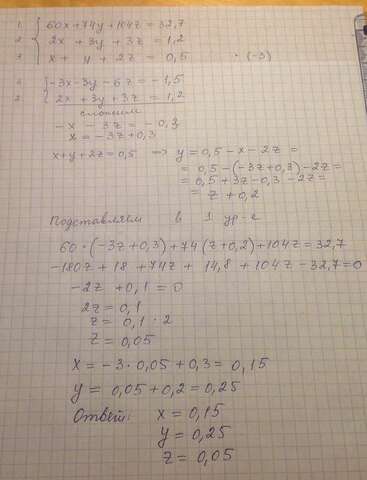 1 { 60x + 74y + 104z = 32,7
2 2x + 3y + 3z = 1,2
3 x + y + 2z = 0,5 · (-3)
{ -3x - 3y - 6z = -1,5
2 2x + 3y + 3z = 1,2
сложим
-x - 3z = -0,3
x = -3z + 0,3
x+y+2z=0,5 ⇒ y = 0,5 - x - 2z =
= 0,5 - (-3z+0,3) - 2z =
= 0,5 + 3z - 0,3 - 2z =
= z + 0,2
Подставляем в 1 ур-е
60 · (-3z + 0,3) + 74 (z + 0,2) + 104z = 32,7
-180z + 18 + 74z + 14,8 + 104z - 32,7 = 0
-2z + 0,1 = 0
2z = 0,1
z = 0,1 : 2
z = 0,05
x = -3 · 0,05 + 0,3 = 0,15
y = 0,05 + 0,2 = 0,25
Ответ: x = 0,15
y = 0,25
z = 0,05